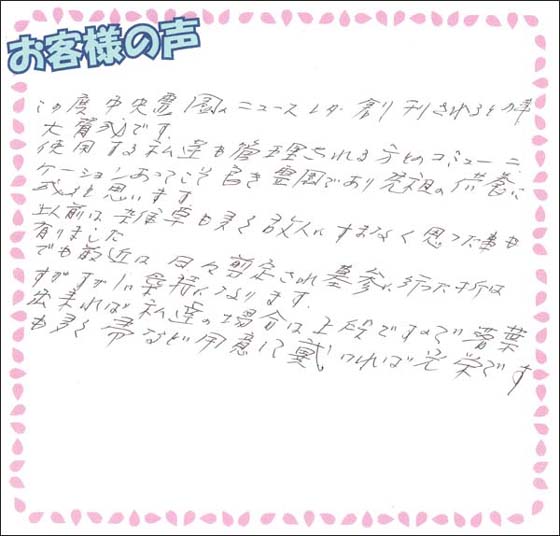 お客様の声
この度中央霊園のニュースレター創刊されるとの事
大賛成です。
使用する私達も管理される方とのコミューニ
ケーションあってこそ良き霊園であり先祖の供養に
成ると思います
以前は雑草も多く故人にすまなく思った事も
有りました
でも最近は日々剪定され墓参に行った折は
すがすがしい気持になります。
出来れば私達の場合は上段ですので落葉
も多く帚など用意して戴ければ光栄です